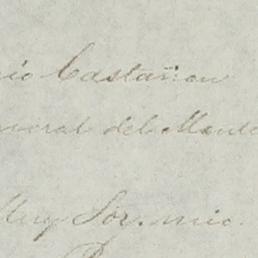 io Castañon
neral del Monte
Muy Sor. mio.